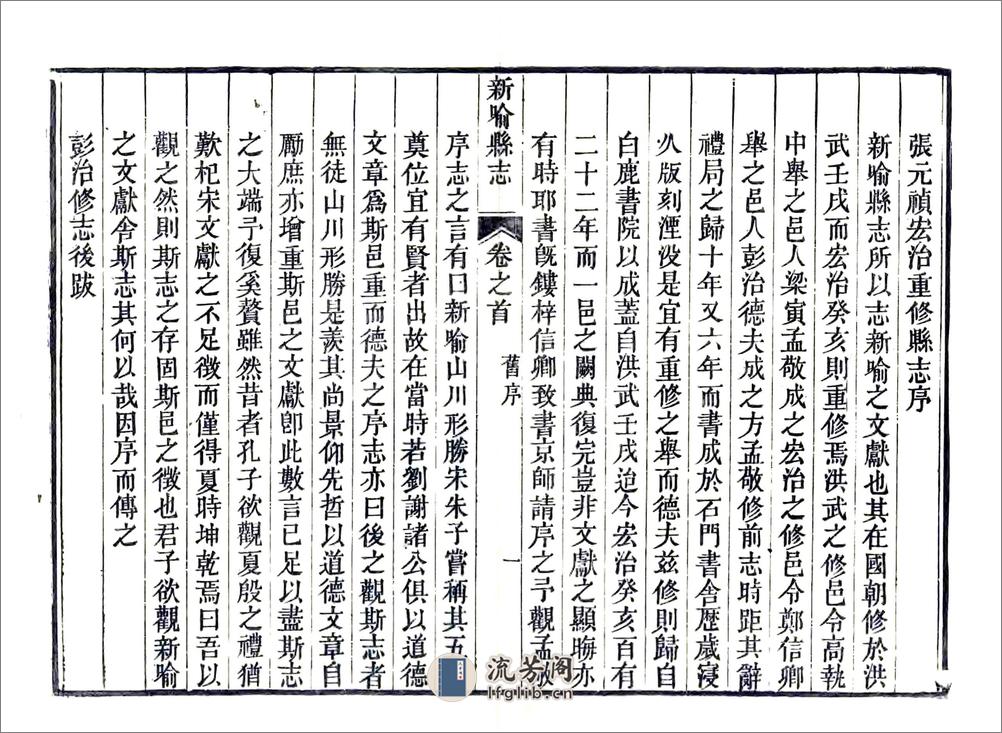 張元禎宏治重修縣志序
新喻縣志所以志新喻之文獻也其在國朝修於洪
武壬戌而宏治癸亥則重修焉洪武之修邑令高執
中舉之邑人梁寅孟敬成之宏治之修邑令鄭信卿
舉之邑人彭治德夫成之方孟敬修前志時距其辭
禮局之歸十年又六年而書成於石門書舍歷歲寖
久版刻湮没是宜有重修之舉而德夫兹修則歸自
白鹿書院以成蓋自洪武壬戌迨今宏治癸亥百有
二十二年而一邑之闕典復完豈非文獻之顯晦亦
有時耶書旣鏤梓信卿致書京師請序之予觀孟敬
新喻縣志 卷之首 舊序 一
序志之言有曰新喻山川形勝宋朱子嘗稱其五
奠位宜有賢者出故在當時若劉謝諸公俱以道德
文章爲斯邑重而德夫之序志亦曰後之觀斯志者
無徒山川形勝是羡其尚景仰先哲以道德文章自
勵庶亦增重斯邑之文獻卽此數言已足以盡斯志
之大端予復奚贅雖然昔者孔子欲觀夏殷之禮猶
歎杞宋文獻之不足徵而僅得夏時坤乾焉曰吾以
觀之然則斯志之存固斯邑之徵也君子欲觀新喻
之文獻舍斯志其何以哉因序而傳之
彭治修志後跋
流芳阁
lfglib.cn